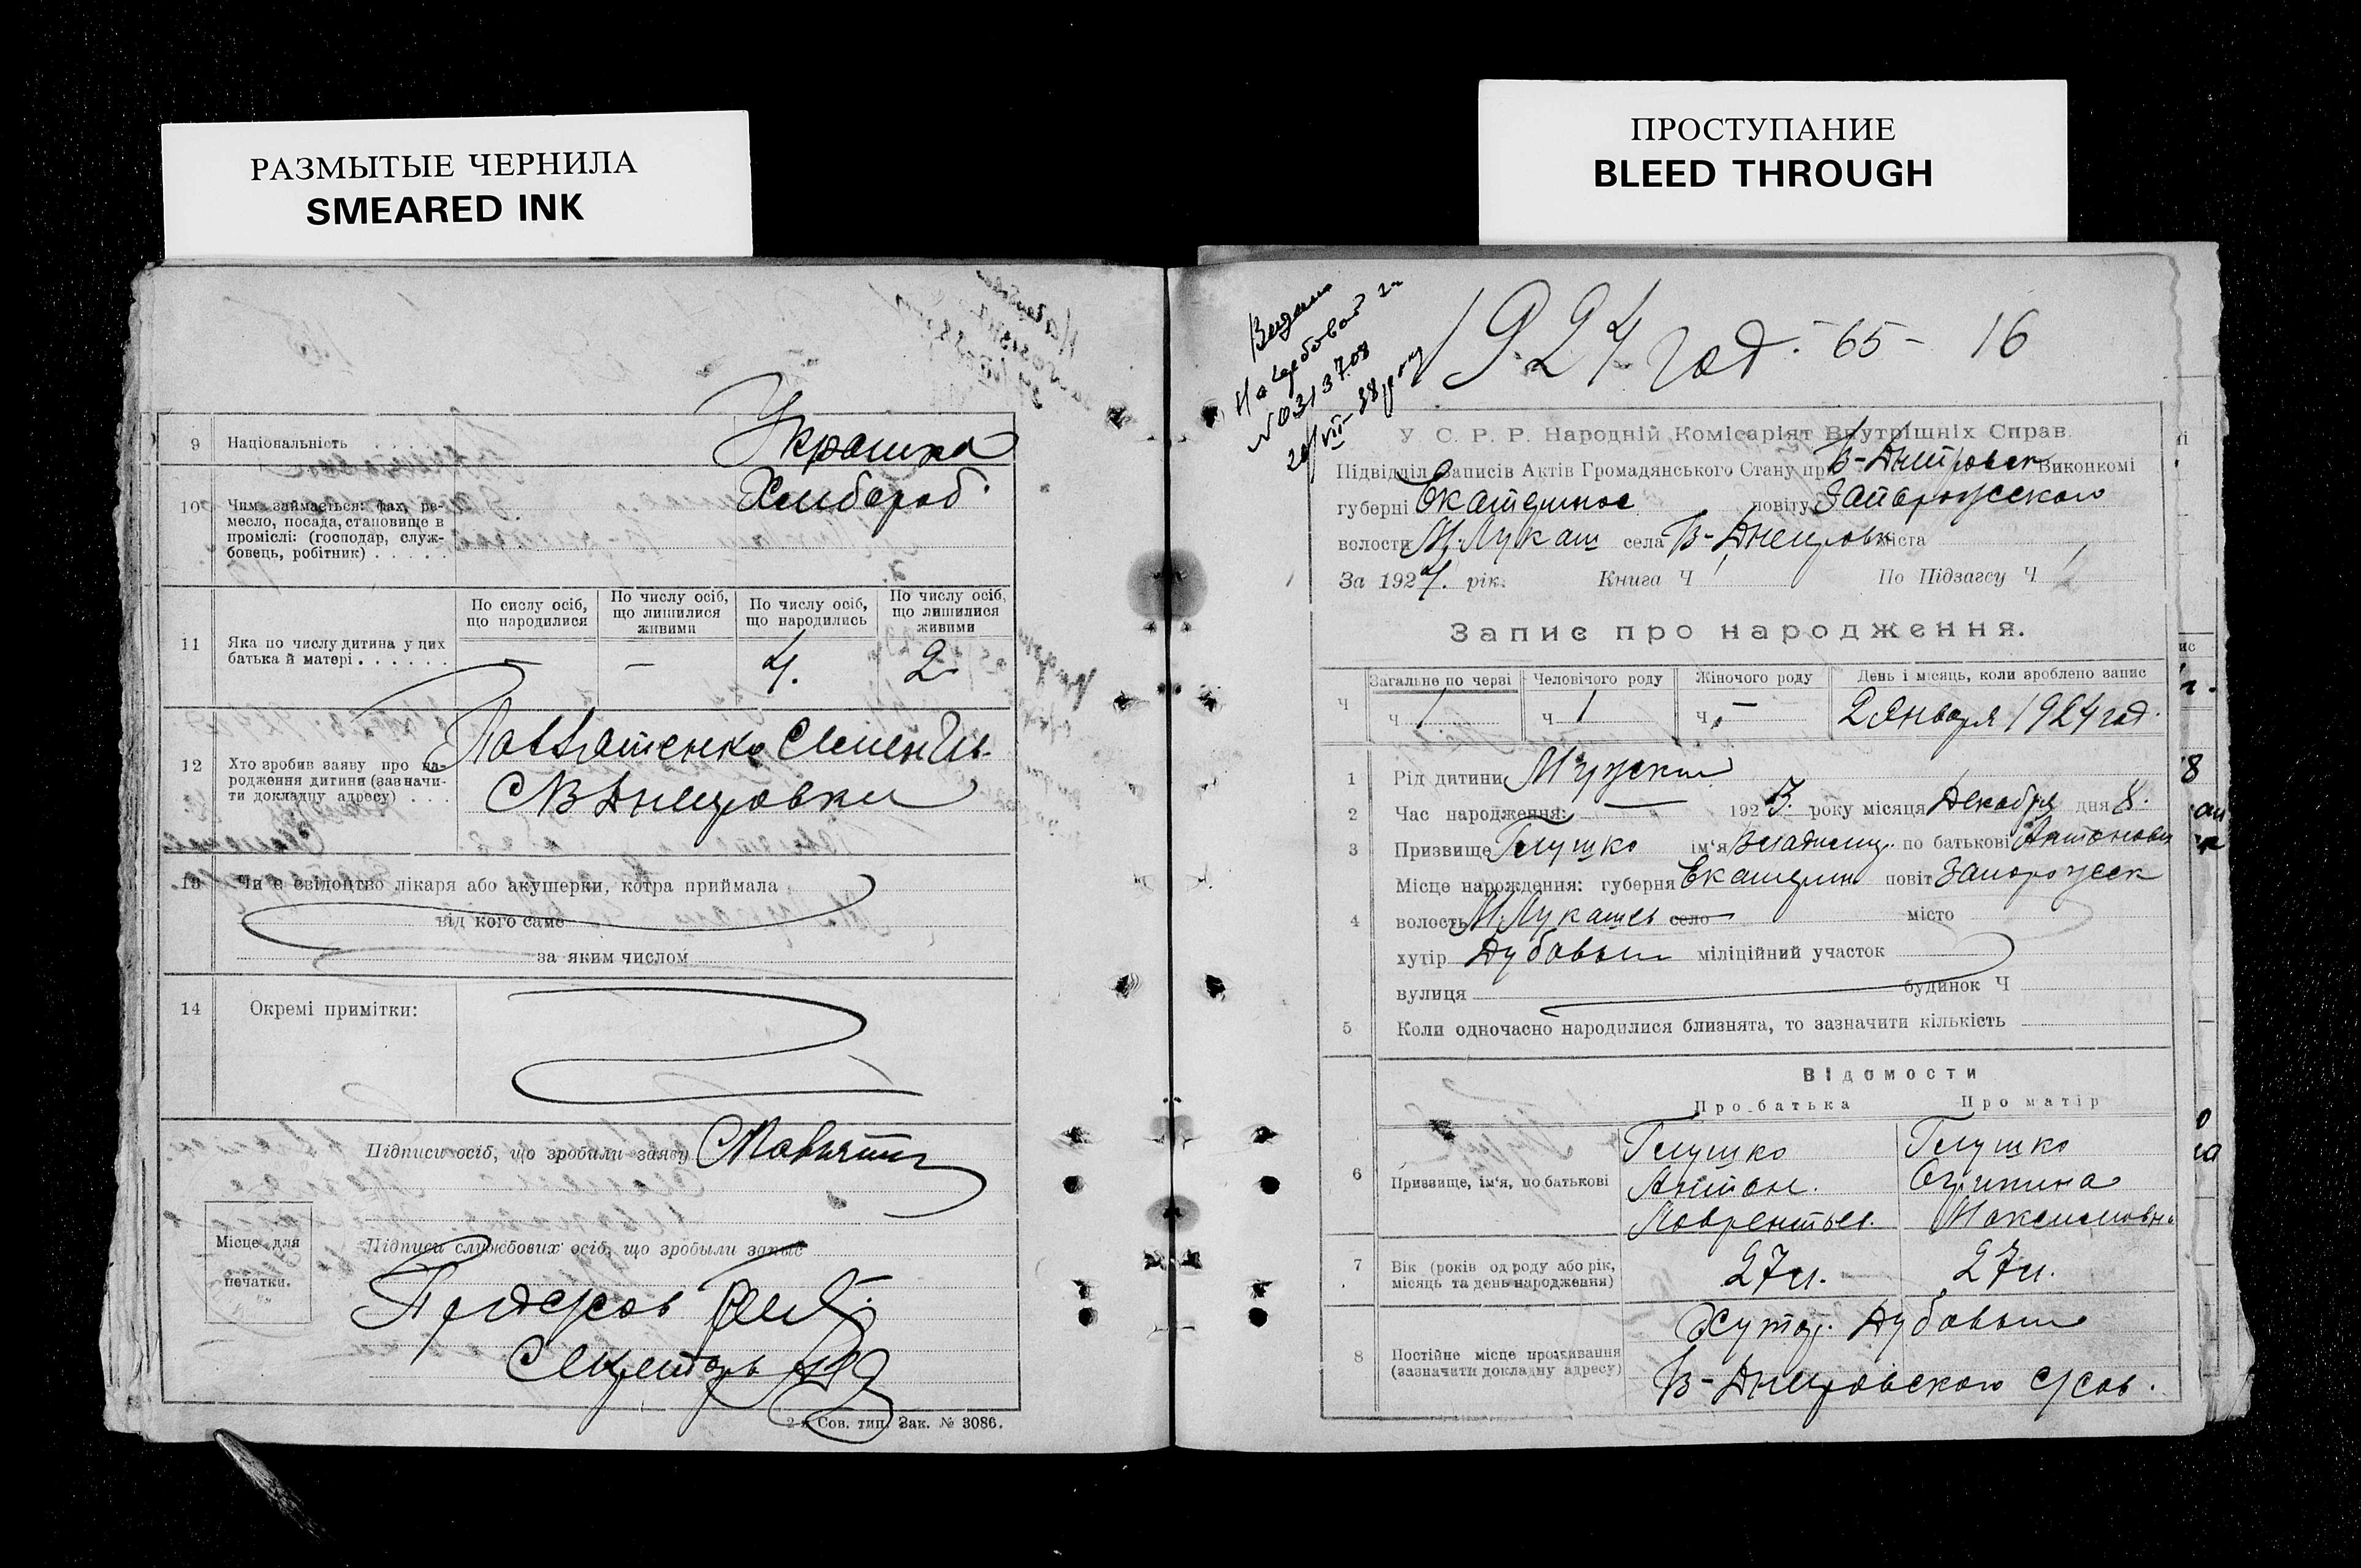 РАЗМЫТЫЕ ЧЕРНИЛА
SMEARED INK
9 Національність Украинка
10 Чим займається: фах, ре-
месло, посада, становище в
промислі: (господар, служ-
бовець, робітник) . . . . . Хлибороб
11 Яка по числу дитина у цих
батька й матері . . . . . .
По сислу осіб,
що народилися
По числу осіб,
що лишилися
живими
По числу осіб,
що народились
По числу осіб,
що лишилися
живими
— — 4. 2
12 Хто зробив заяву про на-
родження дитини (зазначи-
ти докладну адресу) . . .
Семен
С В Днепровки
13 Чи є свідоцтво лікаря або акушерки, котра приймала
від кого саме
за яким числом
14 Окремі примітки:
Підписи осіб, що зробили заяву
Місце для
печатки.
Підписи службових осіб, що зробыли запыс
Предсров
Секретарь
2-я Сов. тип. Зак. № 3086.
ПРОСТУПАНИЕ
BLEED THROUGH
1924 год. 65- 16
У С. Р. Р. Народній Комісаріят Внутрішніх Справ.
Підвідділ Записів Актів Громадянського Стану при В-Днепровск Виконкомі
губерні Екатеринос повіту Запорожского
волости М. Лукаш села В-Днепровк міста
За 1924. рік. Книга Ч По Підзагсу Ч
Запис про народження.
Ч
Загальне по черзі Человічого роду Жіночого роду День і місяць, коли зроблено запис
ч 1 ч 1 ч — 2 Января 1924 год.
1 Рід дитини Мужский
2 Час народження: — 1923. року місяця Декабря дня 8.
3 Призвище Глушко ім'я Владимир. по батькові Антонович
4 Місце нарождення: губерня Екатерин повіт Запорожск
волость М. Лукашев село місто
хутір Дубовый міліційний участок
вулиця будинок Ч
5 Коли одночасно народилися близнята, то зазначити кількість
Відомости
Про батька Про матір
6 Призвище, ім'я, по батькові
Глушко Глушко
Антон.
Лаврентьев. Максимовна
7 Вік (років од роду або рік,
місяць та день народження) 27 л. 27 л.
8 Постійне місце проживання
(зазначити докладну адресу)
Хутор. Дубовый
В-Днепровского с/сов.